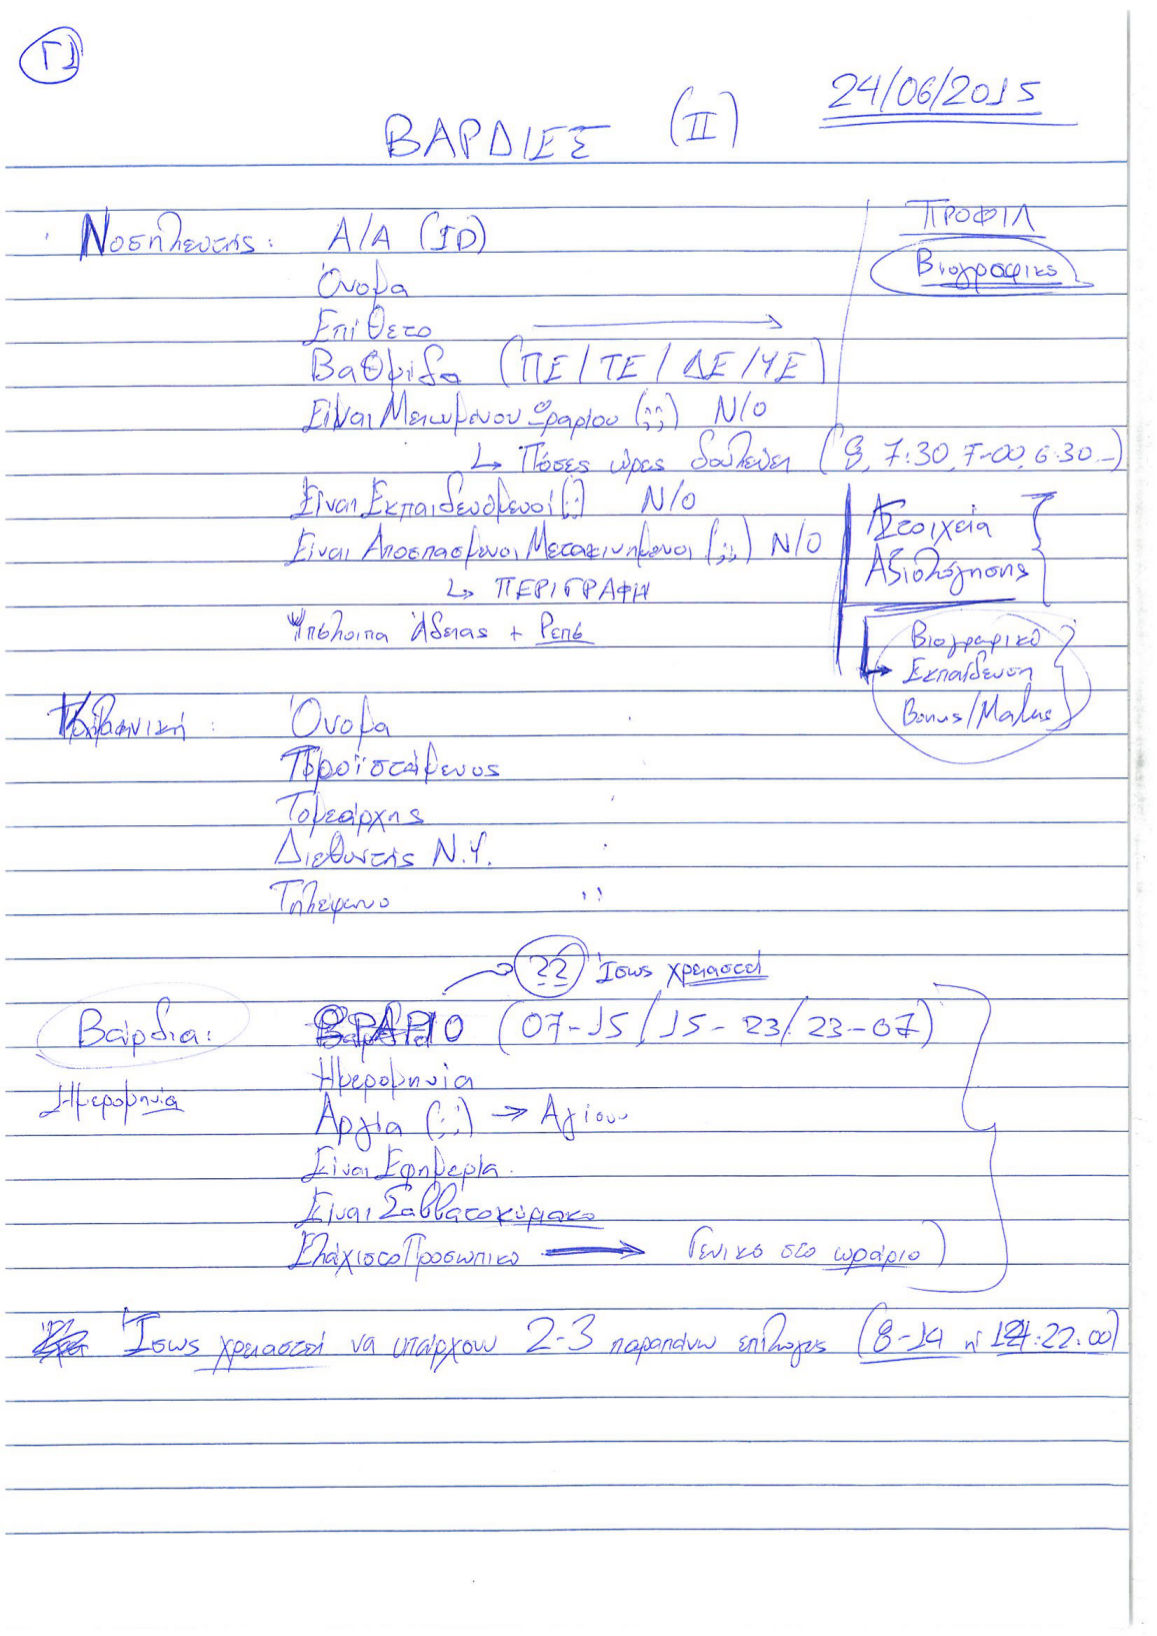 Γ1
24/06/2015
ΒΑΡΔΙΕΣ (II)
Νοσηλευτής: Α/Α (ID)
ΠΡΟΦΙΛ
Βιογραφικο
Όνομα
Επίθετο
Βαθμίδα (ΠΕ/ΤΕ/ΔΕ/ΥΕ)
Είναι Μειωμένου Ωραρίου (;;) Ν/Ο
↳ Πόσες ώρες δουλεύει (8, 7:30, 7-00, 6:30 -)
Είναι Εκπαιδευόμενοι (;) Ν/Ο
Στοιχεία
Είναι Αποσπασμένοι Μετακινημένοι (;;) Ν/Ο
Αξιολόγησης
↳ ΠΕΡΙΓΡΑΦΗ
Υπόλοιπα Άδειας + Ρεπό
Βιογραφικό
Εκπαίδευση
Bonus/Malus
Κλινική: Όνομα
Προϊστάμενος
Τομεάρχης
Διευθυντής Ν.Υ.
Τηλέφωνο
?? Ίσως χρειαστεί
Βάρδια: ΩΡΑΡΙΟ (07-15/15-23/23-07)
Ημερομηνία
Ημερομηνία
Αργία (;;) → Αγίου
Είναι Εφημερία.
Είναι Σαββατοκύριακο
Ελάχιστο Προσωπικό → Γενικο στο ωράριο)
Ίσως χρειαστεί να υπάρχουν 2-3 παραπάνω επιλογες (8-14 ή 14:22:00)